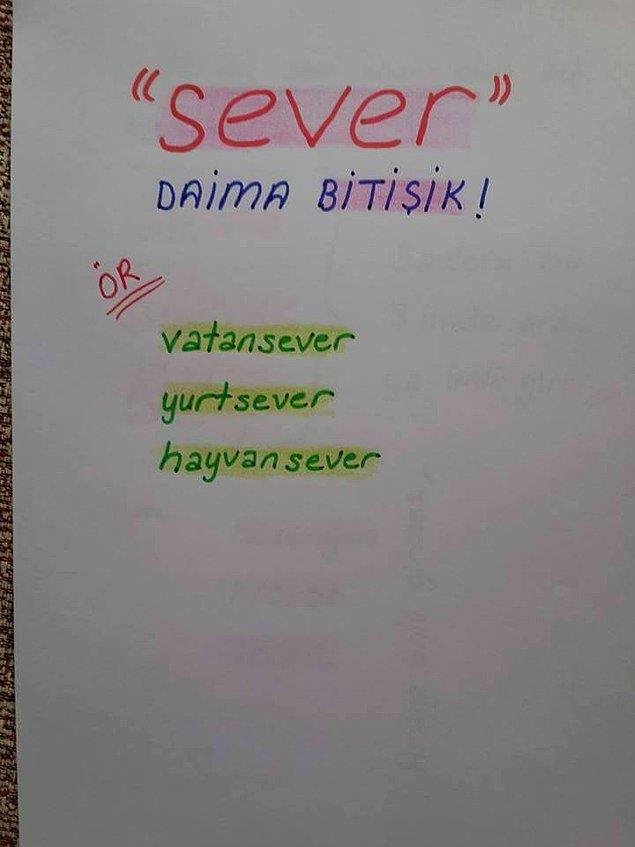 "sever"
DAİMA BİTİŞİK!
ÖR
vatansever
yurtsever
hayvansever